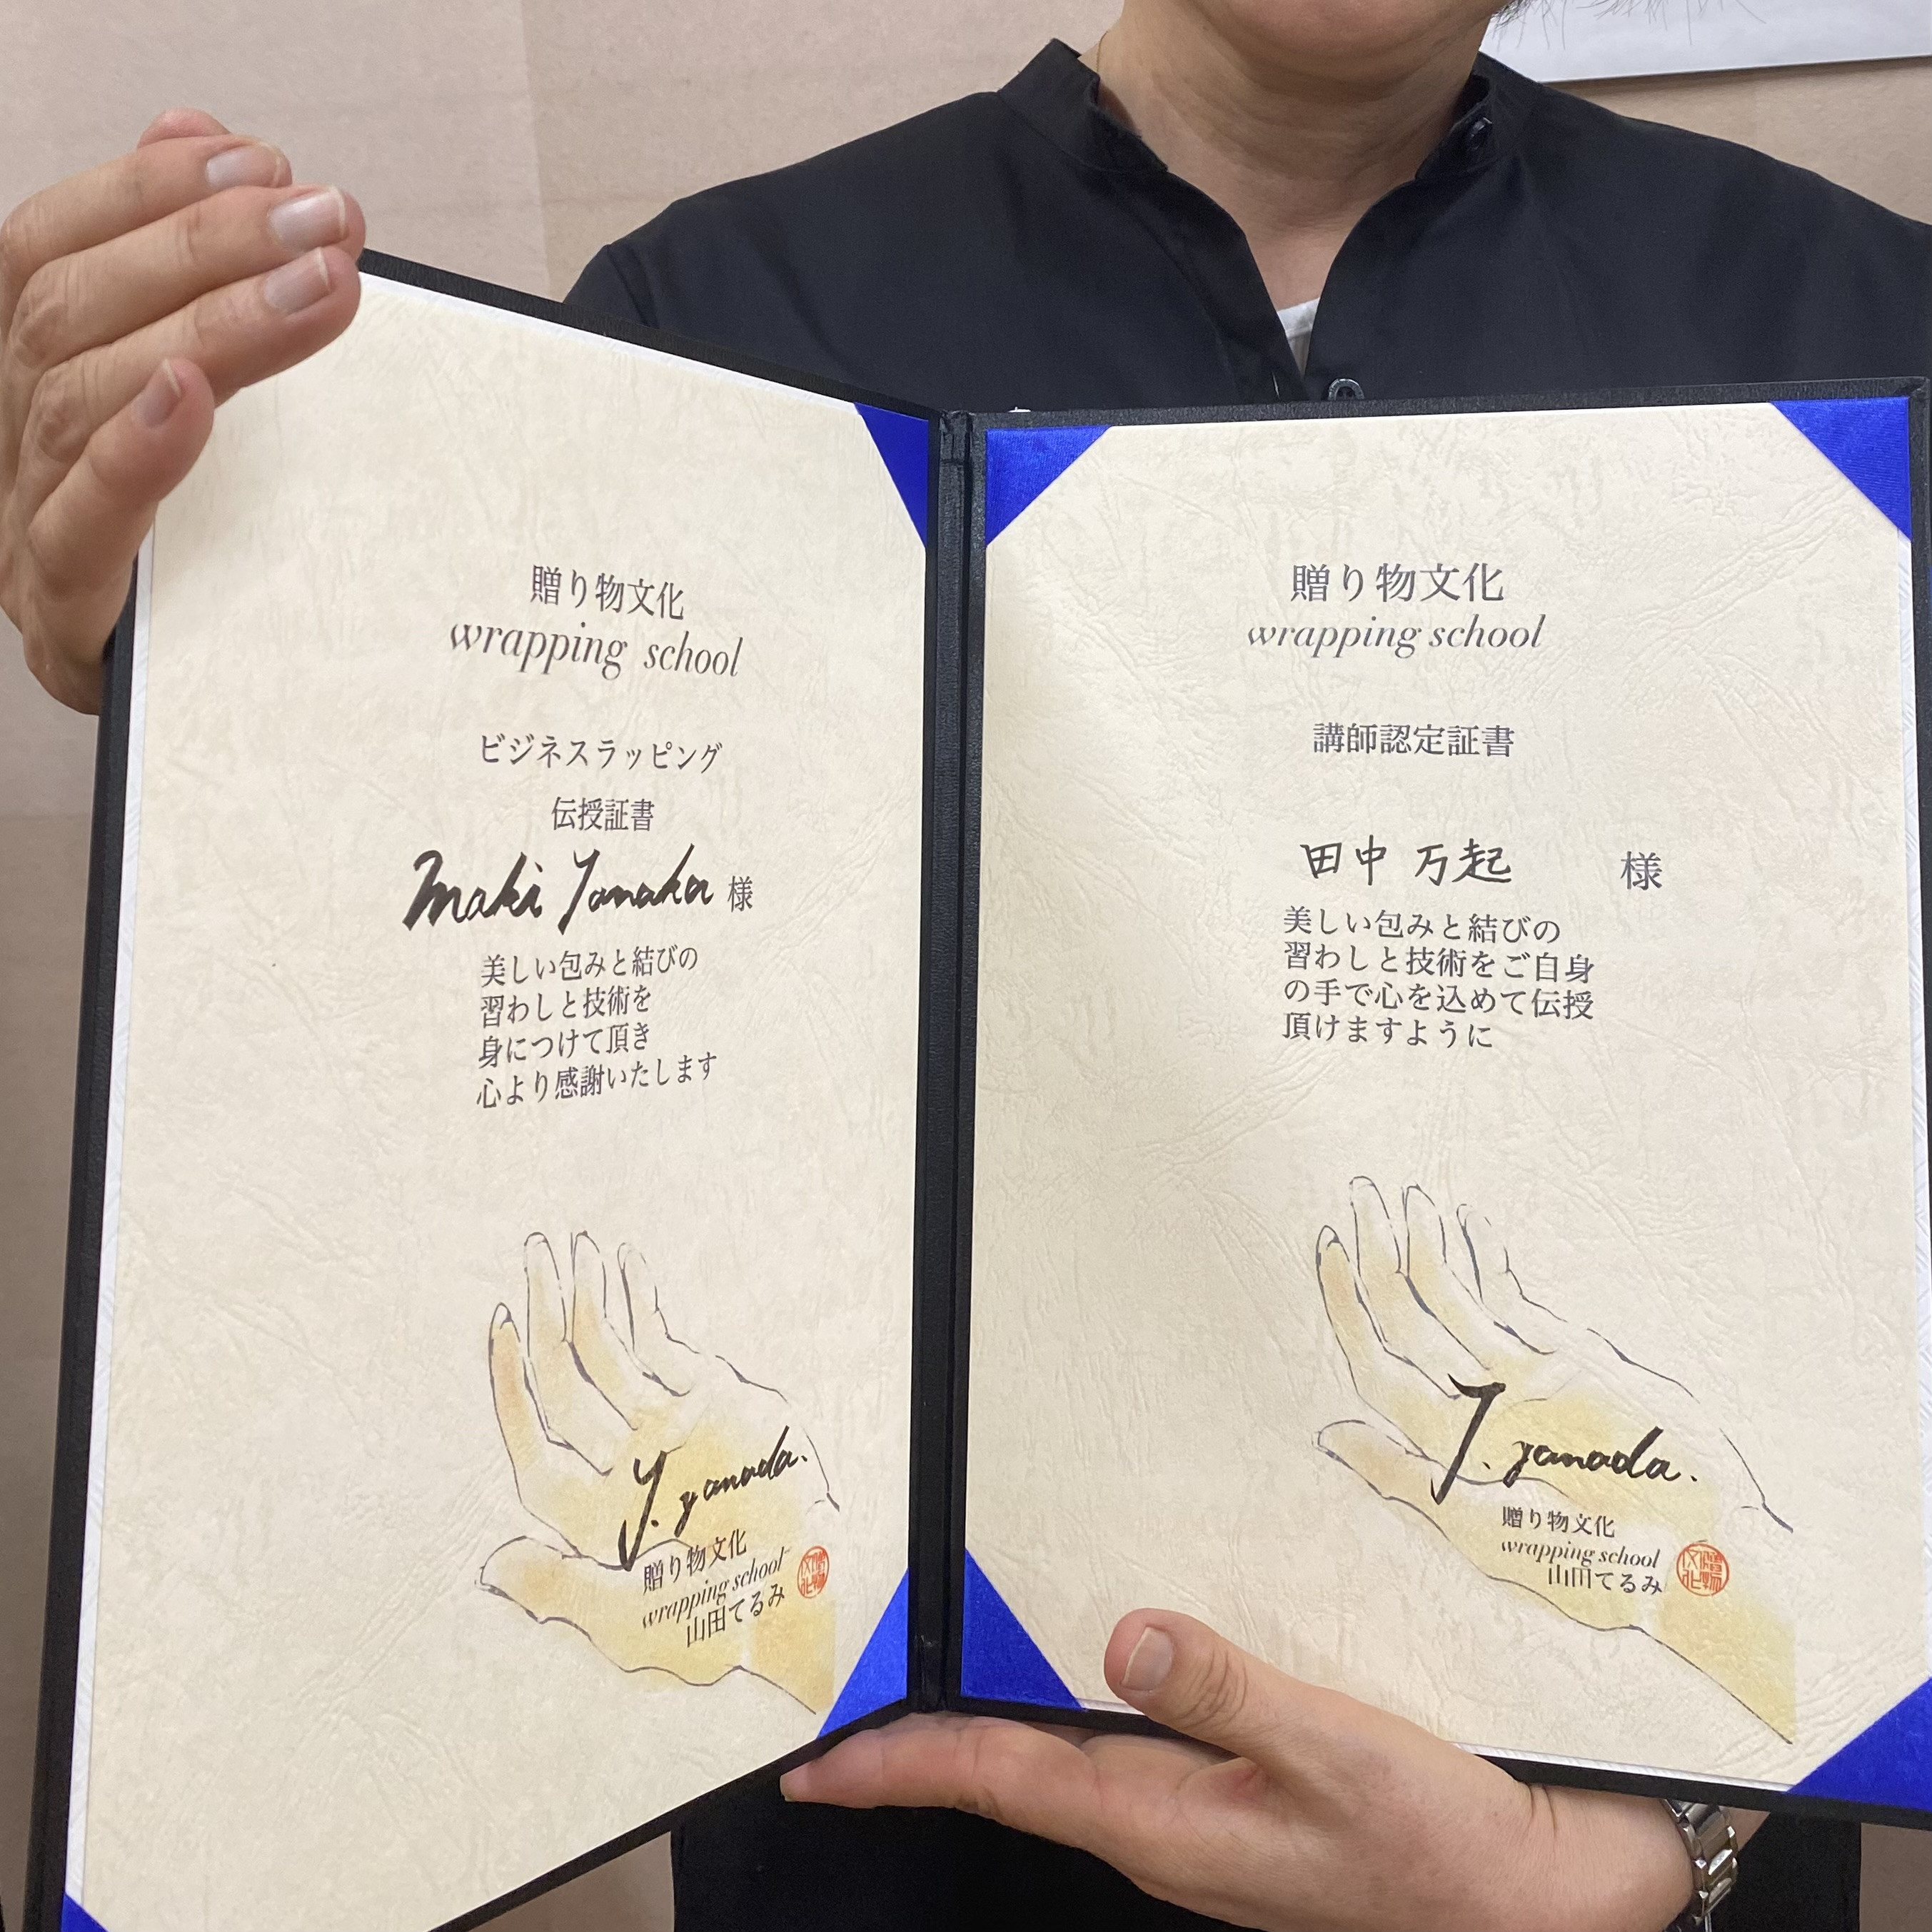 贈り物文化
wrapping school
ビジネスラッピング
伝授証書
Maki Tanaka 様
美しい包みと結びの
習わしと技術を
身につけて頂き
心より感謝いたします
J. yamada.
贈り物文化
wrapping school
山田てるみ
贈り物文化
wrapping school
講師認定証書
田中 万起 様
美しい包みと結びの
習わしと技術をご自身
の手で心を込めて伝授
頂けますように
J. yamada.
贈り物文化
wrapping school
山田てるみ